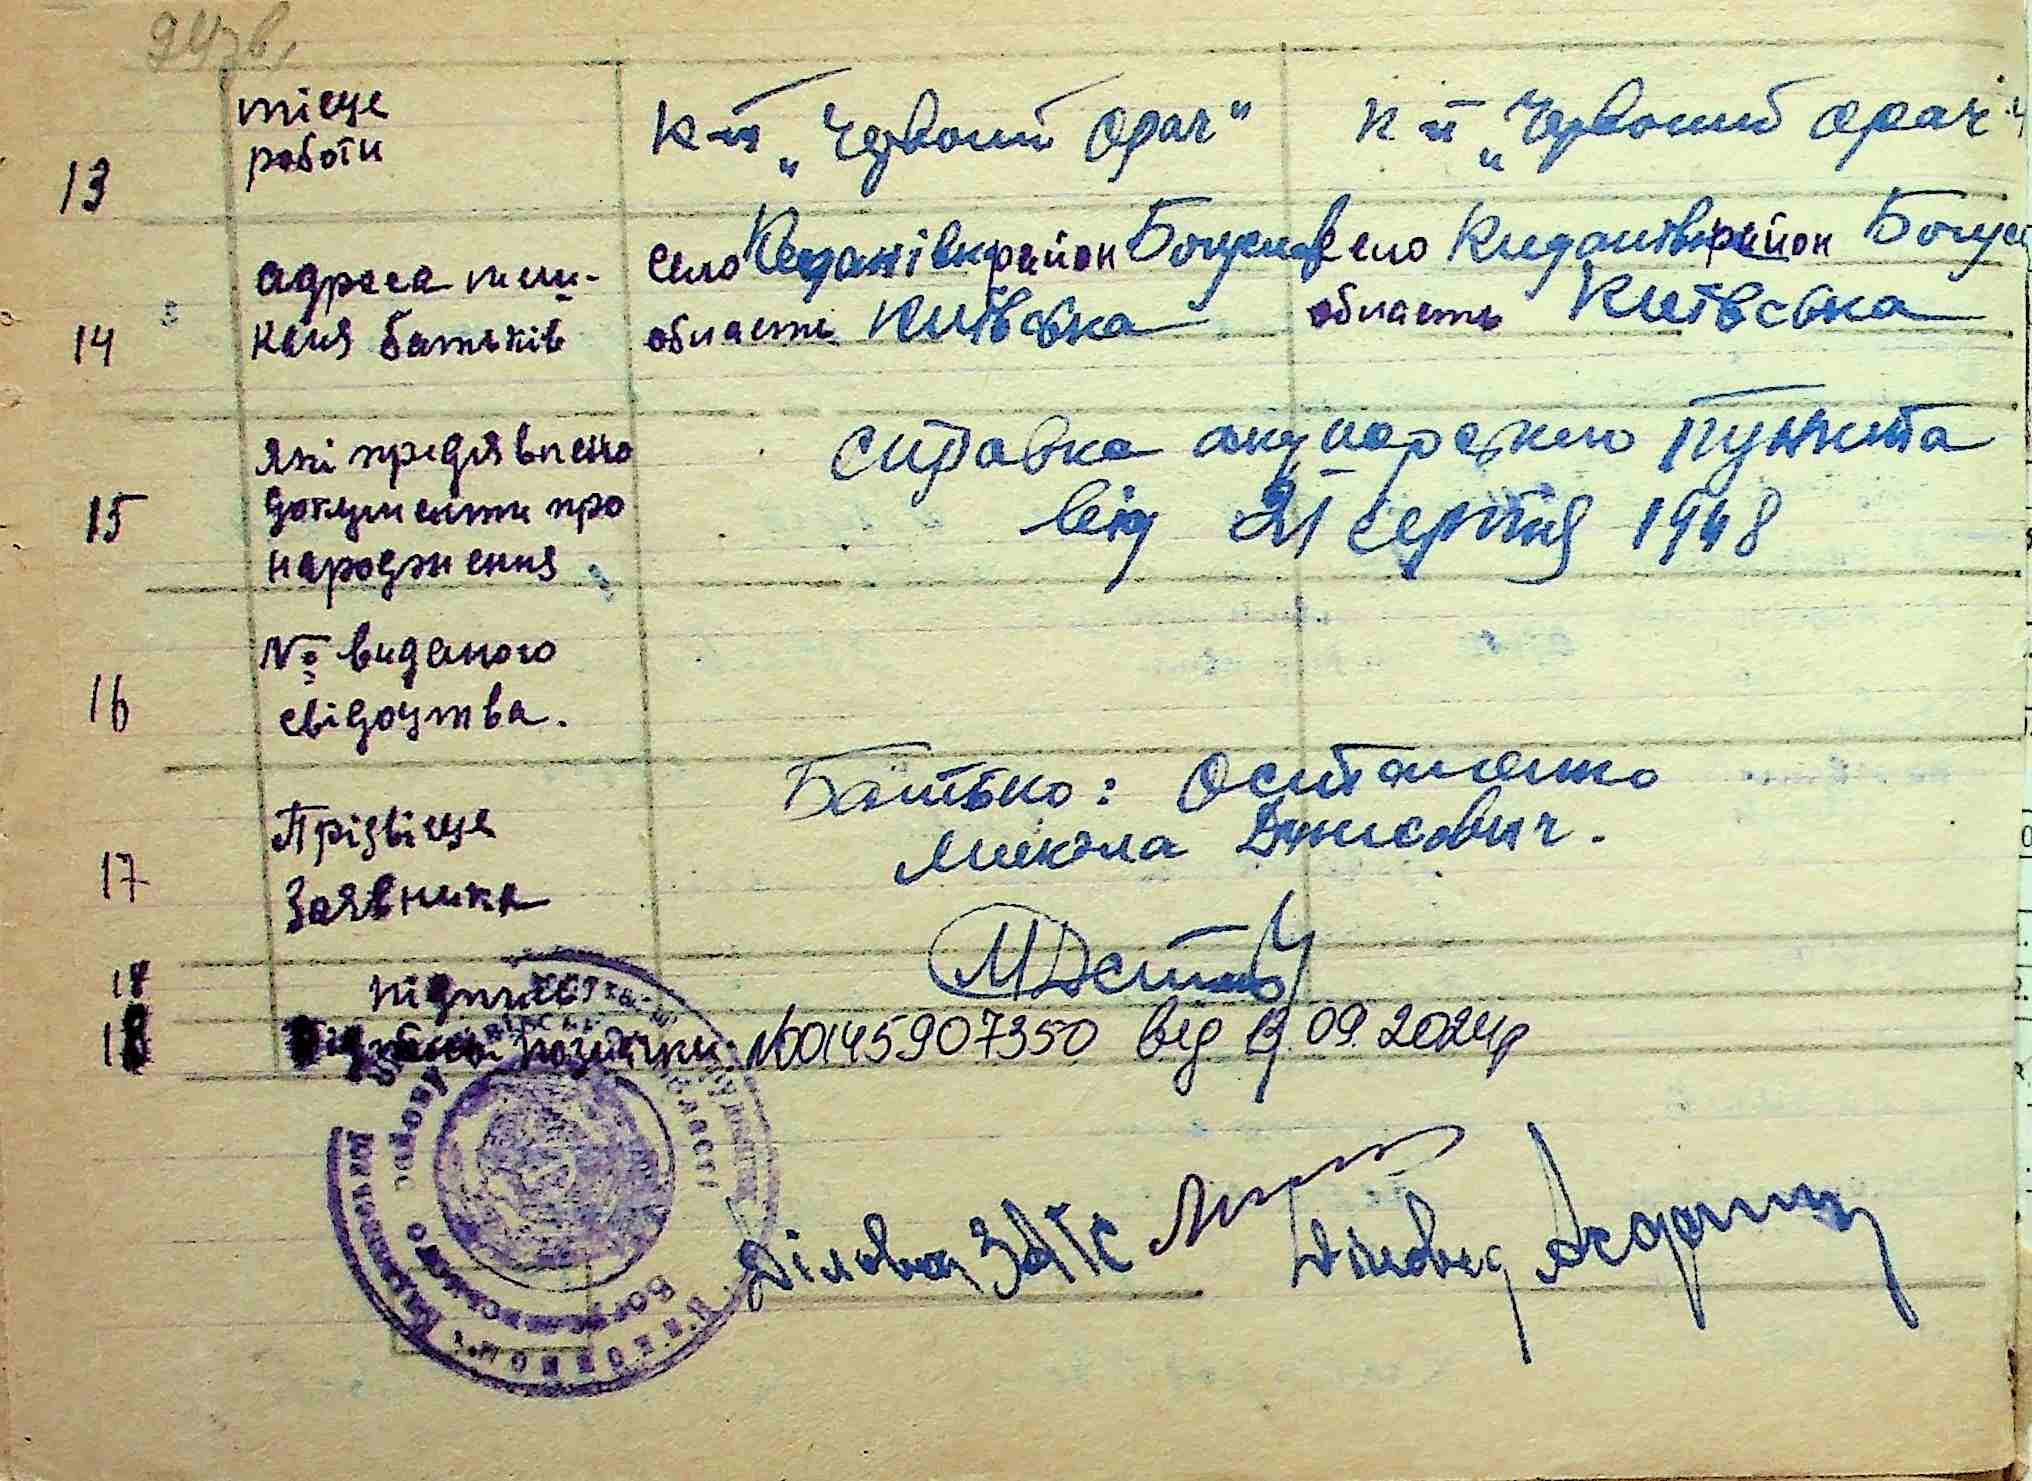 94зв.
13 місце роботи
к-п „Червоний Орач" к-п „Червоний Орач"
14 адреса меш-
кання батьків
село Киданівка район Богуслав село Киданівка район Богус
область Київська область Київська
15 які предявлено
документи про
народження
справка акушорского пункта
від 21 серпня 1948
16 № виданого
свідоцтва.
17 Прізвіще
Заявника
Батько: Остапенко
Микола Денисович.
18 підписі
18 позначки №00145907350 від 09.2024р
Діловод ЗАГС Діловод